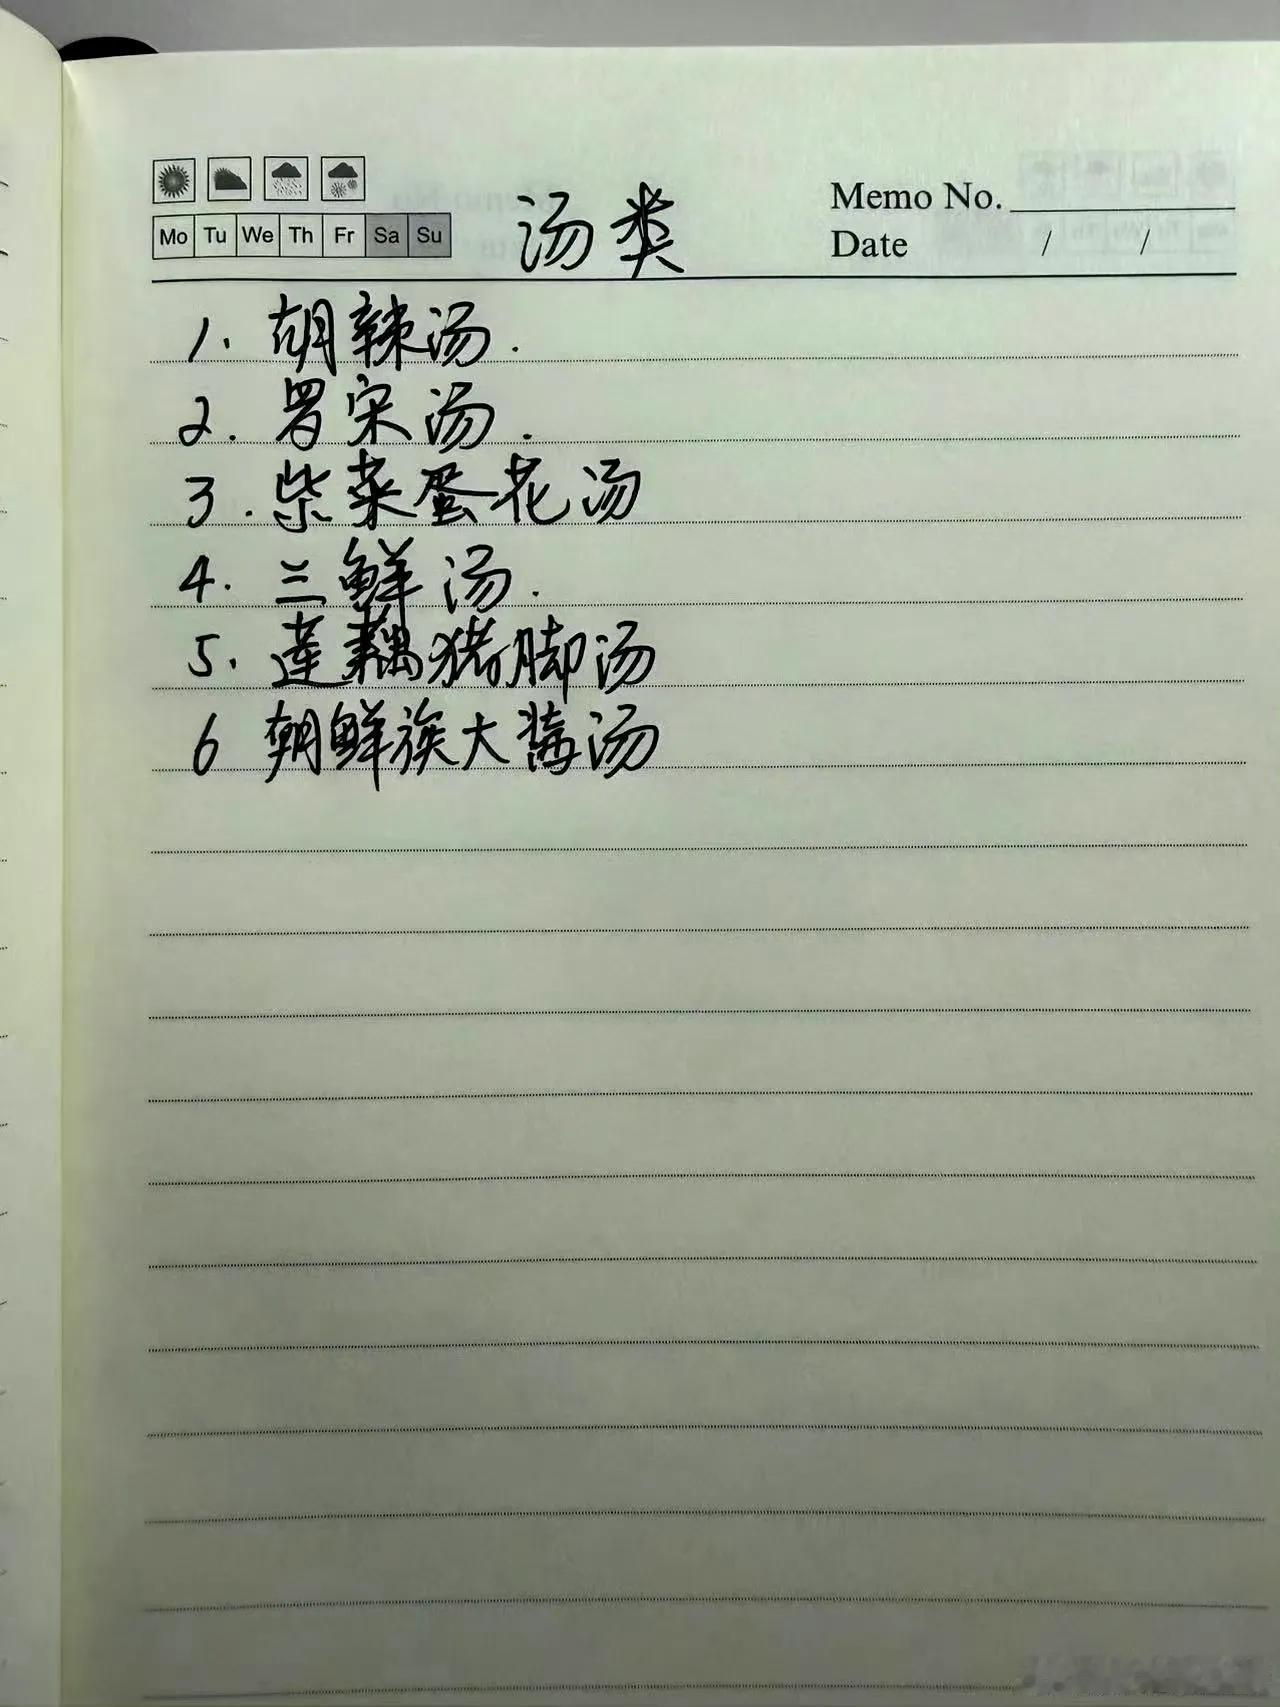 汤类
Memo No.
Mo Tu We Th Fr Sa Su
Date / /
1. 胡辣汤.
2. 罗宋汤.
3. 紫菜蛋花汤
4. 三鲜汤.
5. 莲藕猪脚汤
6 朝鲜族大酱汤